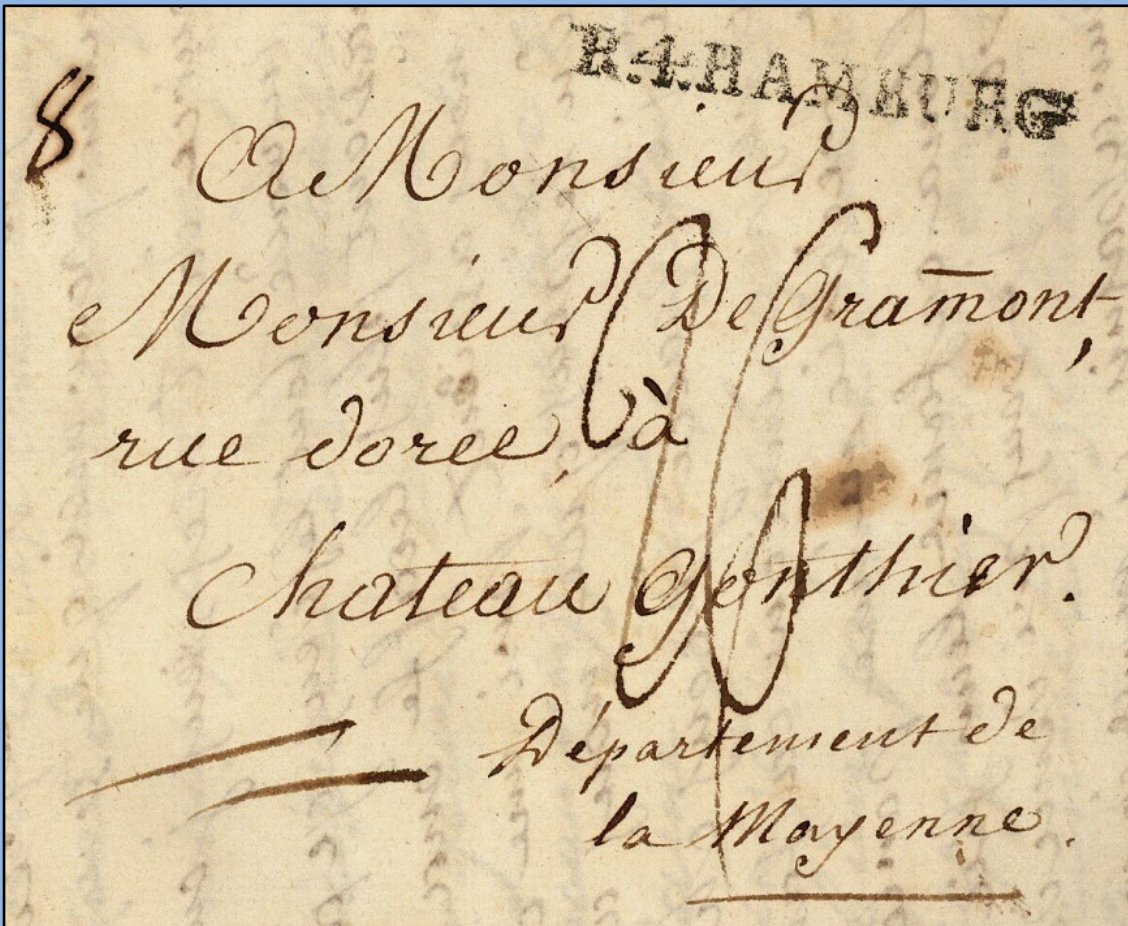 R.4.HAMBURG
8
A Monsieur
Monsieur De Gram̄ont,
rue dorée, à
Chateau gonthier.
Département de
la Mayenne.